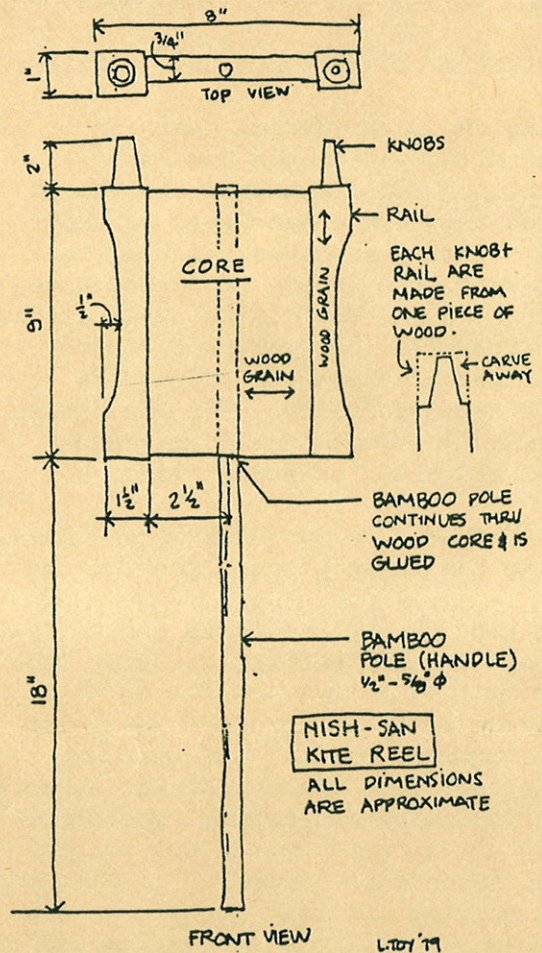 8"
3/4"
1"
TOP VIEW
2"
KNOBS
RAIL
CORE
WOOD GRAIN
EACH KNOB &
RAIL ARE
MADE FROM
ONE PIECE OF
WOOD.
CARVE
AWAY
9"
1/2"
WOOD
GRAIN
1 1/2"
2 1/2"
BAMBOO POLE
CONTINUES THRU
WOOD CORE & IS
GLUED
18"
BAMBOO
POLE (HANDLE)
1/2" - 5/8" ϕ
NISH-SAN
KITE REEL
ALL DIMENSIONS
ARE APPROXIMATE
FRONT VIEW
L.TOY '79